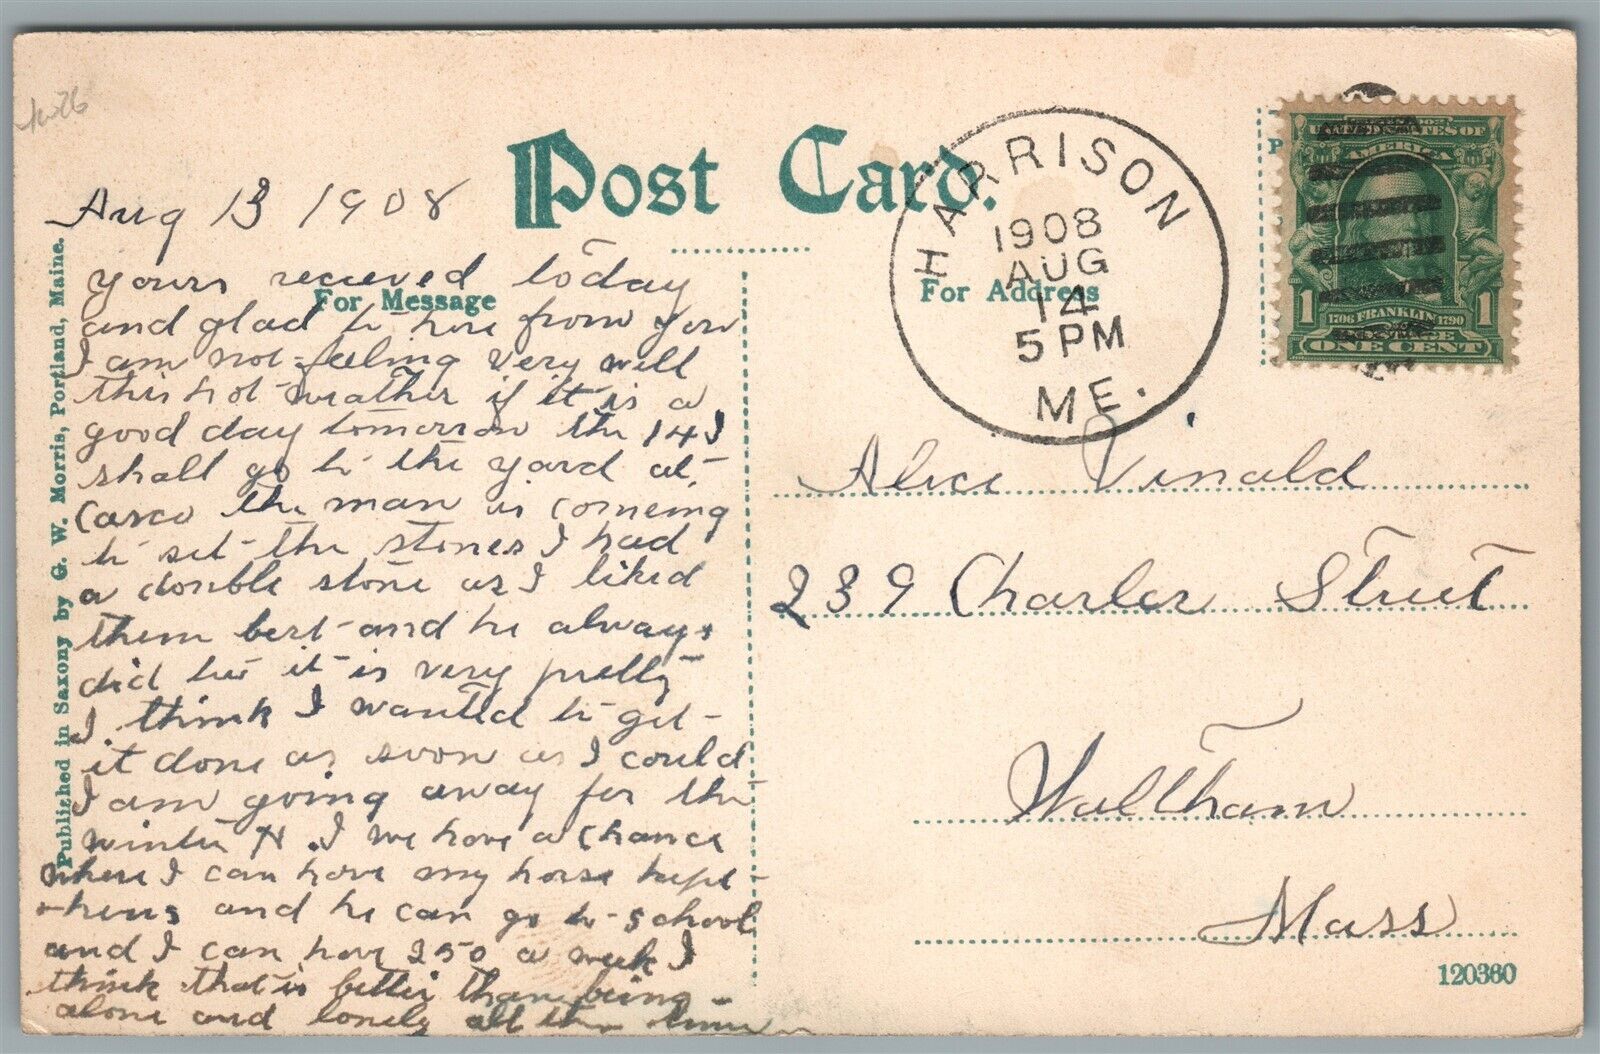 Post Card.
Aug 13 1908
For Message
yours recieved today
and glad to here from you
I am not feeling very well
this hot weather if it is a
good day tomorrow the 14 I
shall go to the yard at
Casco the man is comeing
to set the stones I had
a double stone as I liked
them best and he always
did but it is very pretty
I think I wanted to get
it done as soon as I could
I am going away for the
winter N. I we have a chance
where I can have my horse kept
hens and he can go to school
and I can have 250 a week I
think that is better than being
alone and lonely all the time
Published in Saxony by G. W. Morris, Portland, Maine.
HARRISON
1908
AUG
14
5 PM
ME.
For Address
UNITED STATES OF
AMERICA
1 1706 FRANKLIN 1790 1
POSTAGE
ONE CENT
Alice Vinald
239 Charles Street
Waltham
Mass
120360